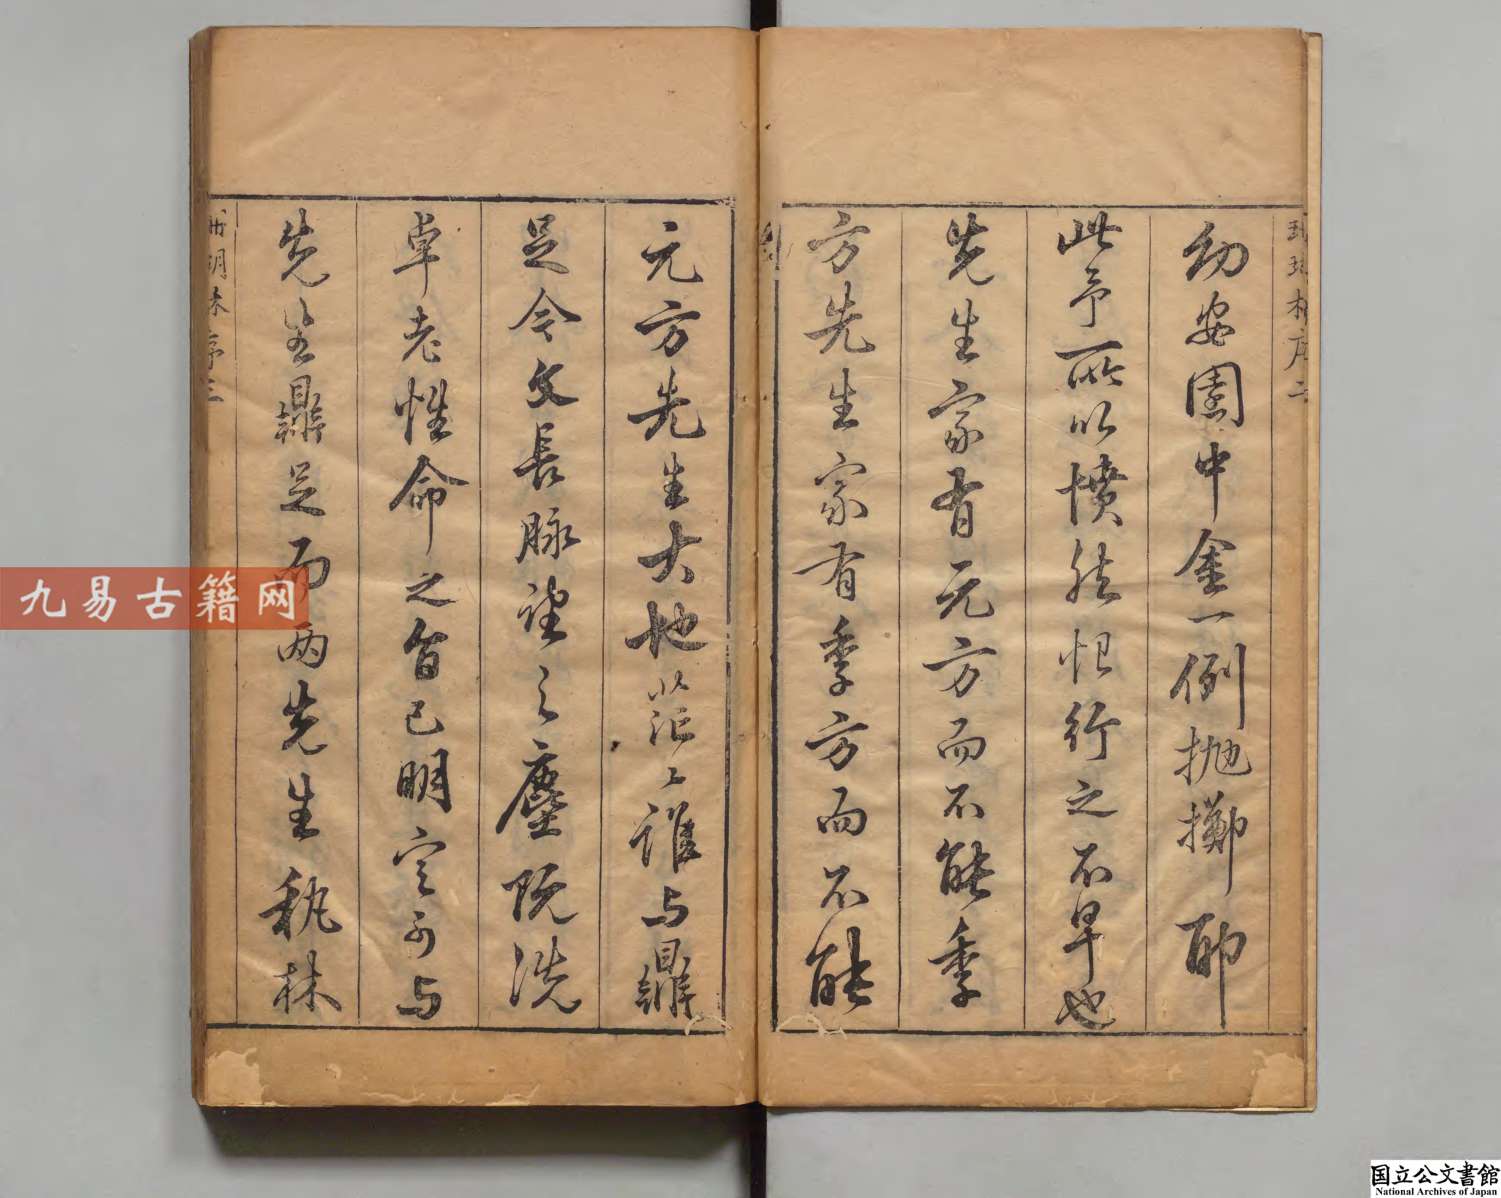 幼安園中金一例抛擲耶
此予所以憤然怛行之不早也
先生家有元方而不能季
方先生家有季方而不能
元方先生大地茫々誰与鼎
足今文長脉望之塵既洗
卓老性命之旨已明定可与
先生鼎足而兩先生秇林
序二
序三
九易古籍网
国立公文書館
National Archives of Japan